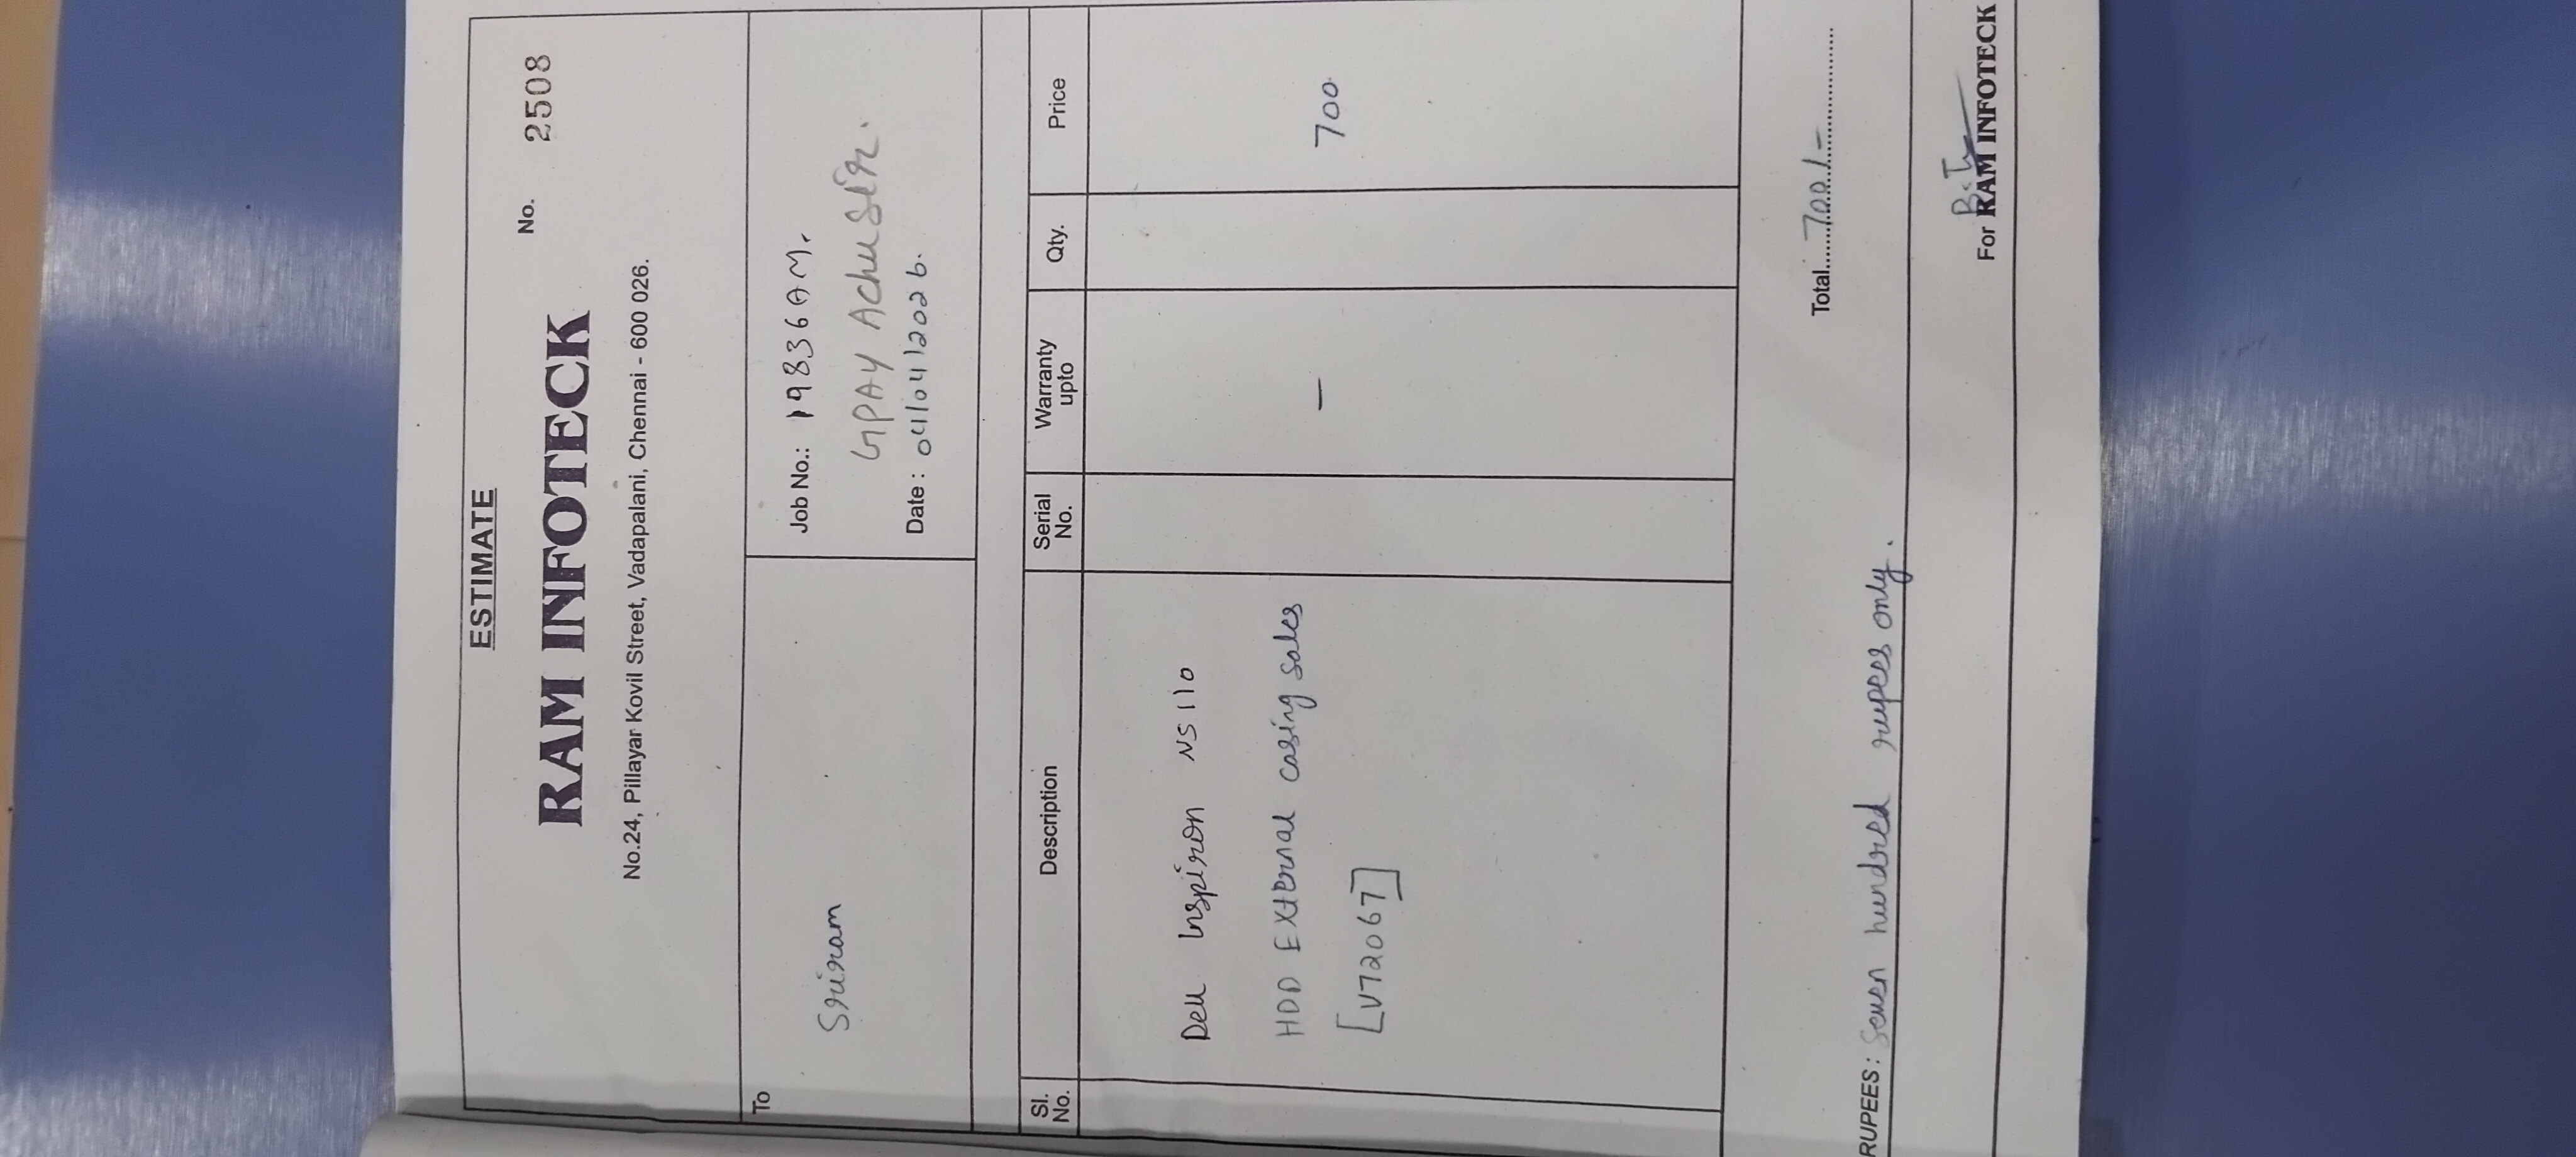 ESTIMATE
RAM INFOTECK
No. 2508
No.24, Pillayar Kovil Street, Vadapalani, Chennai - 600 026.
To
Sriram
Job No.: 19836AM.
GPAY Achu Sir.
Date : 04/04/2026.
Sl. No. Description Serial No. Warranty upto Qty. Price
Dell Inspiron N5110
HDD External casing sales — 700
[V72067]
Total 700/-
RUPEES: Seven hundred rupees only.
For RAM INFOTECK